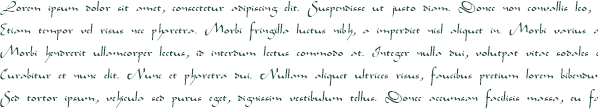 Lorem ipsum dolor sit amet, consectetur adipiscing elit. Suspendisse ut justo diam. Donec non convallis leo,
Etiam tempor vel risus nec pharetra. Morbi fringilla luctus nibh, a imperdiet nisl aliquet in. Morbi varius a
Morbi hendrerit ullamcorper lectus, id interdum lectus commodo at. Integer nulla dui, volutpat vitae sodales
Curabitur et nunc elit. Nunc et pharetra dui. Nullam aliquet ultrices risus, faucibus pretium lorem bibendu
Sed tortor ipsum, vehicula sed purus eget, dignissim vestibulum tellus. Donec accumsan facilisis massa, eu f